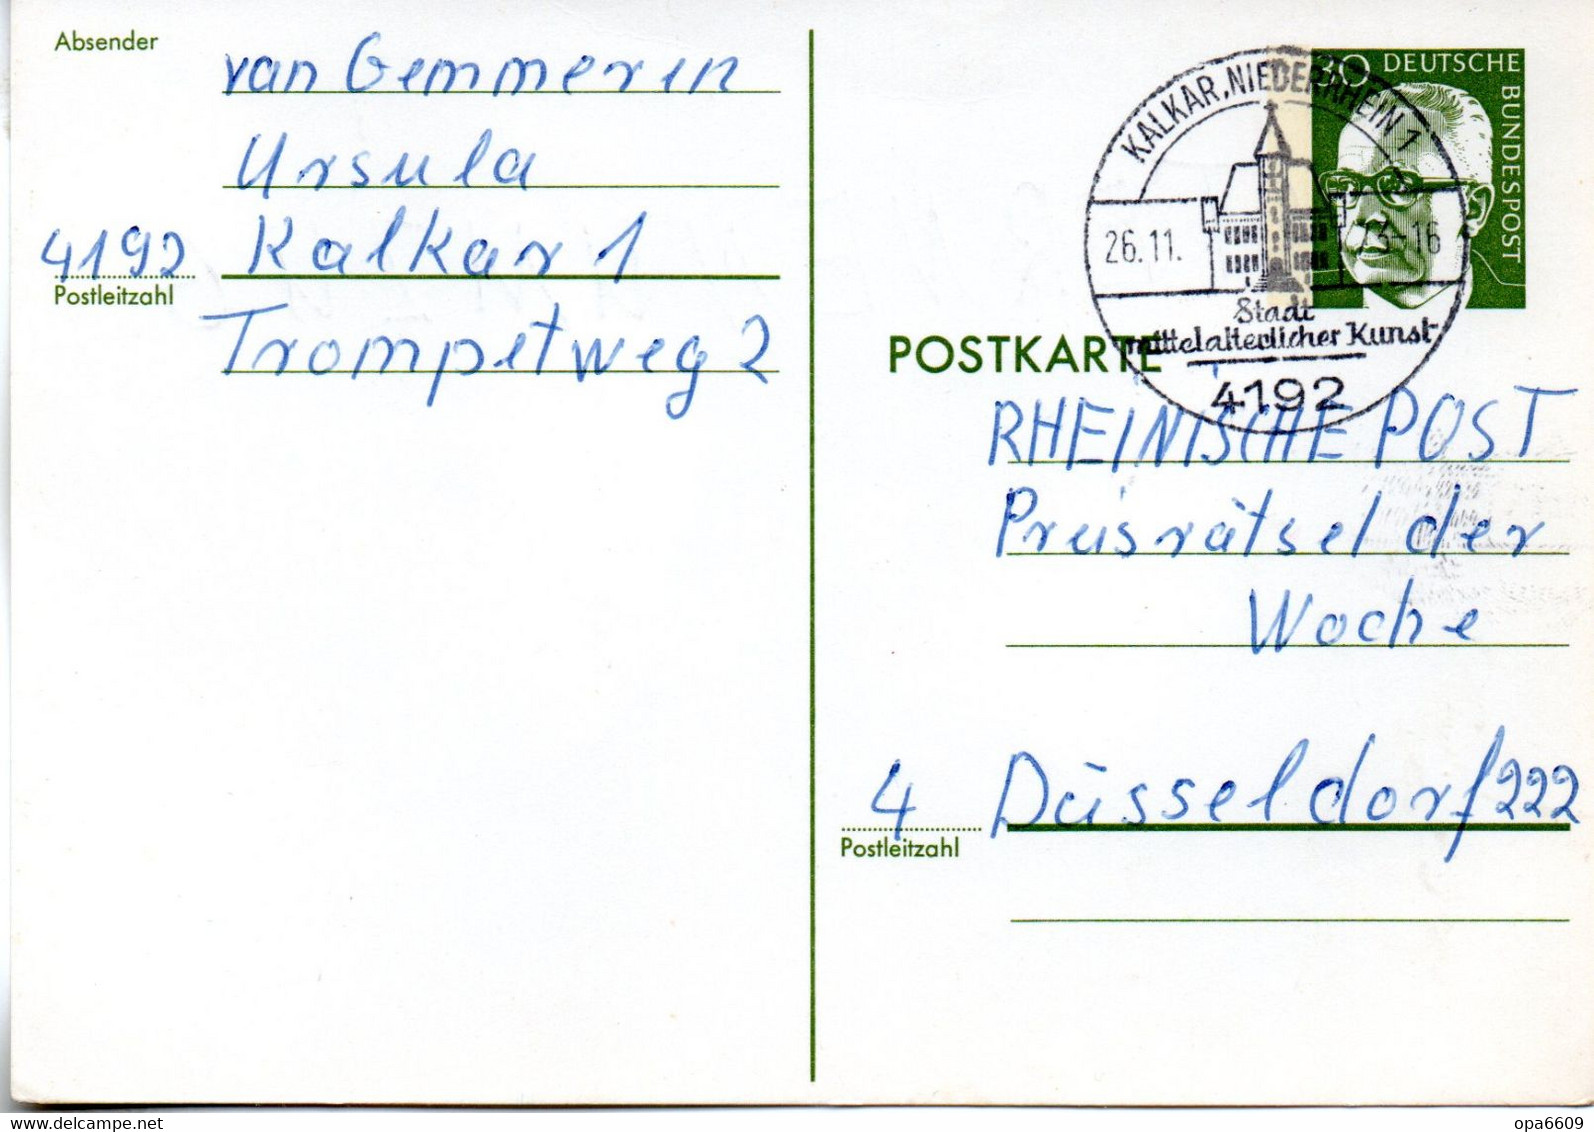 Absender
van Gemmeren
Ursula
4192 Kalkar 1
Postleitzahl
Trompetweg 2
KALKAR, NIEDERRHEIN 1
26.11. 73-16
Stadt
mittelalterlicher Kunst
4192
30 DEUTSCHE
BUNDESPOST
POSTKARTE
RHEINISCHE POST
Preisrätsel der
Woche
4 Düsseldorf 222
Postleitzahl
www.delcampe.net
opa6609